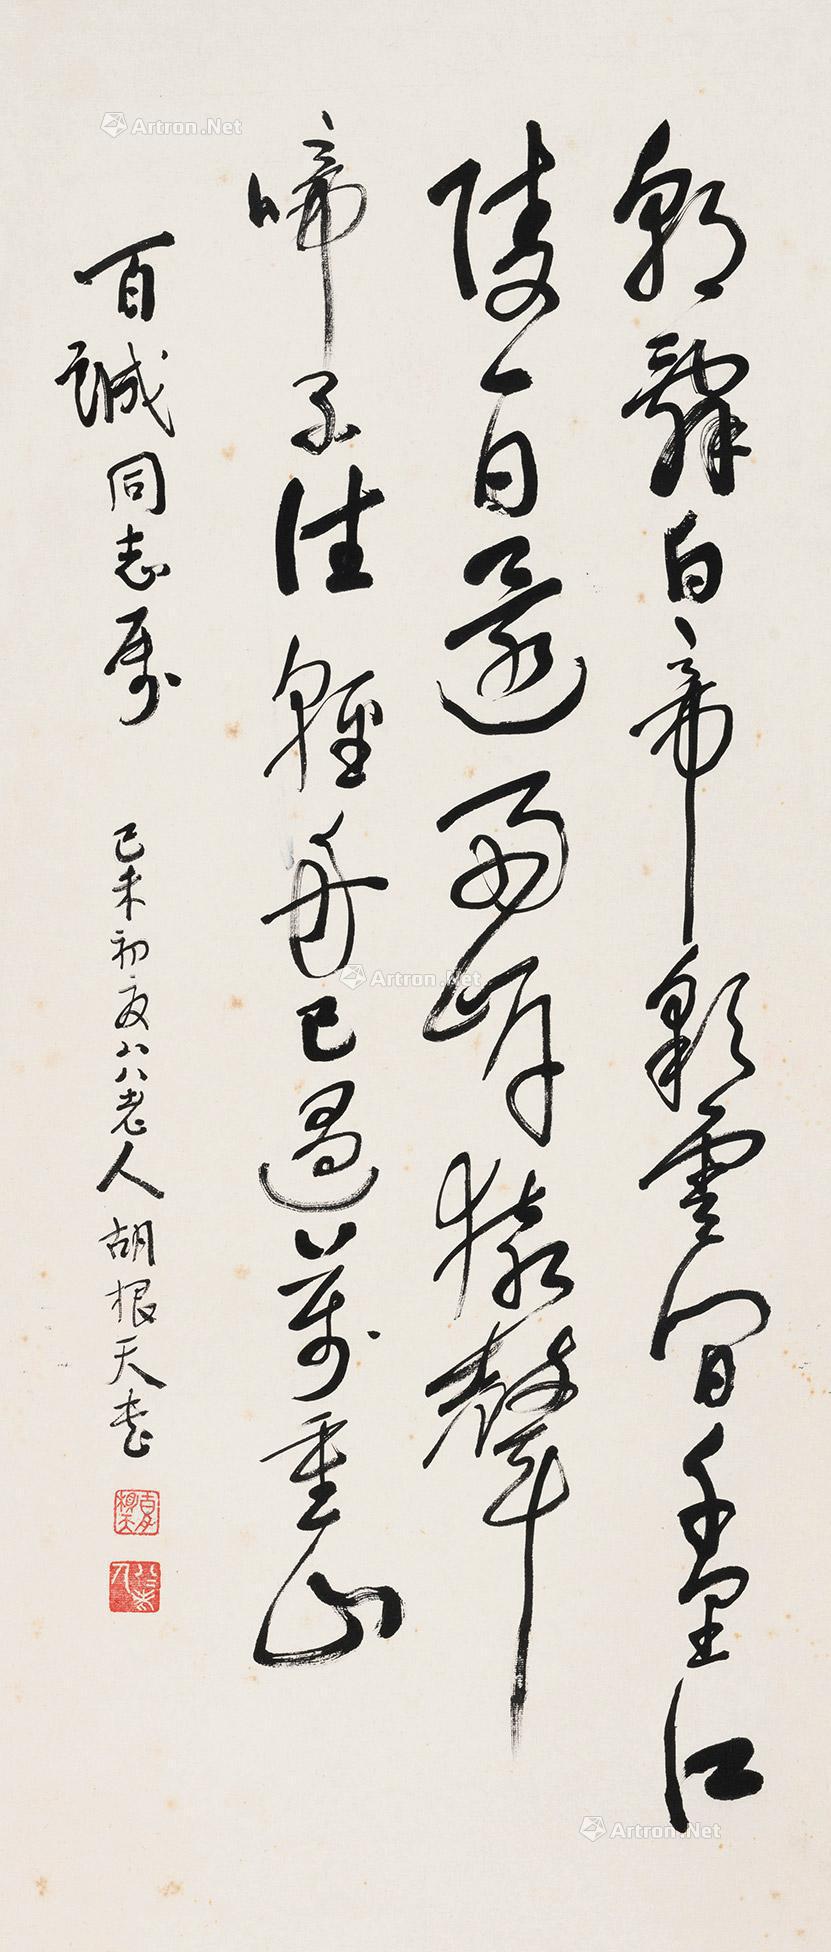 朝辭白帝彩雲間千里江
陵一日還兩岸猿聲
啼不住輕舟已過萬重山
百誠同志屬
己未初夏八八老人胡根天書
胡根天
Artron.Net
Artron.Net
Artron.Net